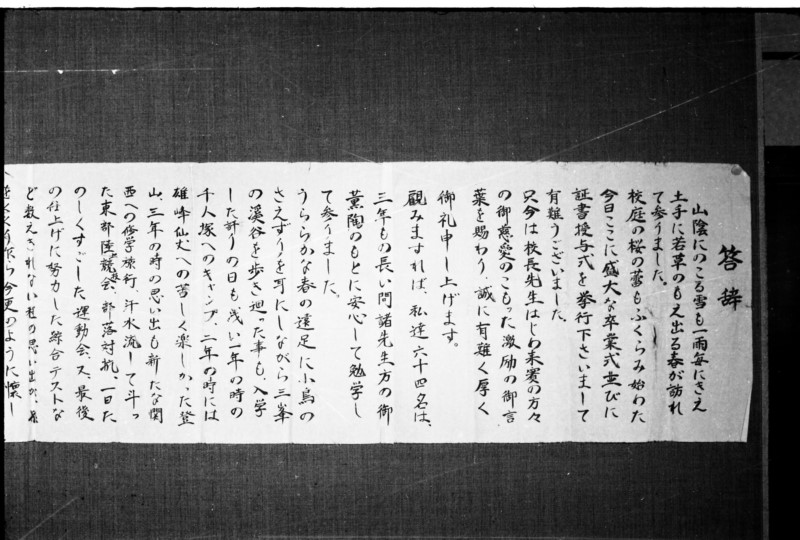 答辞
山陰にのこる雪も一雨毎にきえ
土手に若草のもえ出る春が訪れ
て参りました。
校庭の桜の蕾もふくらみ始めた
今日ここに盛大な卒業式並びに
証書授与式を挙行下さいまして
有難うございました。
只今は校長先生はじめ来賓の方々
の御慈愛のこもった激励の御言
葉を賜わり、誠に有難く厚く
御礼申し上げます。
観みますれば、私達六十四名は、
三年もの長い間諸先生方の御
薫陶のもとに安心して勉学し
て参りました。
うららかな春の遠足に小鳥の
さえずりを耳にしながら三峯
の溪谷を歩き廻った事も、入学
した許りの日も浅い一年の時の
千人塚へのキャンプ、二年の時には
雄峰仙丈への苦しく楽しかった登
山、三年の時の思い出も新たな関
西への修学旅行、汗水流して斗っ
た東部陸競会、部落対抗、一日た
のしくすごした運動会、又、最後
の仕上げに努力した綜合テストな
ど数えきれない程の思い出が、
今更のように懐し